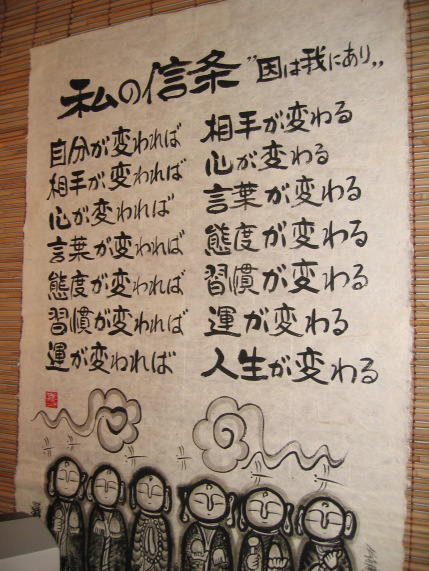 私の信条 "因は我にあり"
自分が変われば 相手が変わる
相手が変われば 心が変わる
心が変われば 言葉が変わる
言葉が変われば 態度が変わる
態度が変われば 習慣が変わる
習慣が変われば 運が変わる
運が変われば 人生が変わる